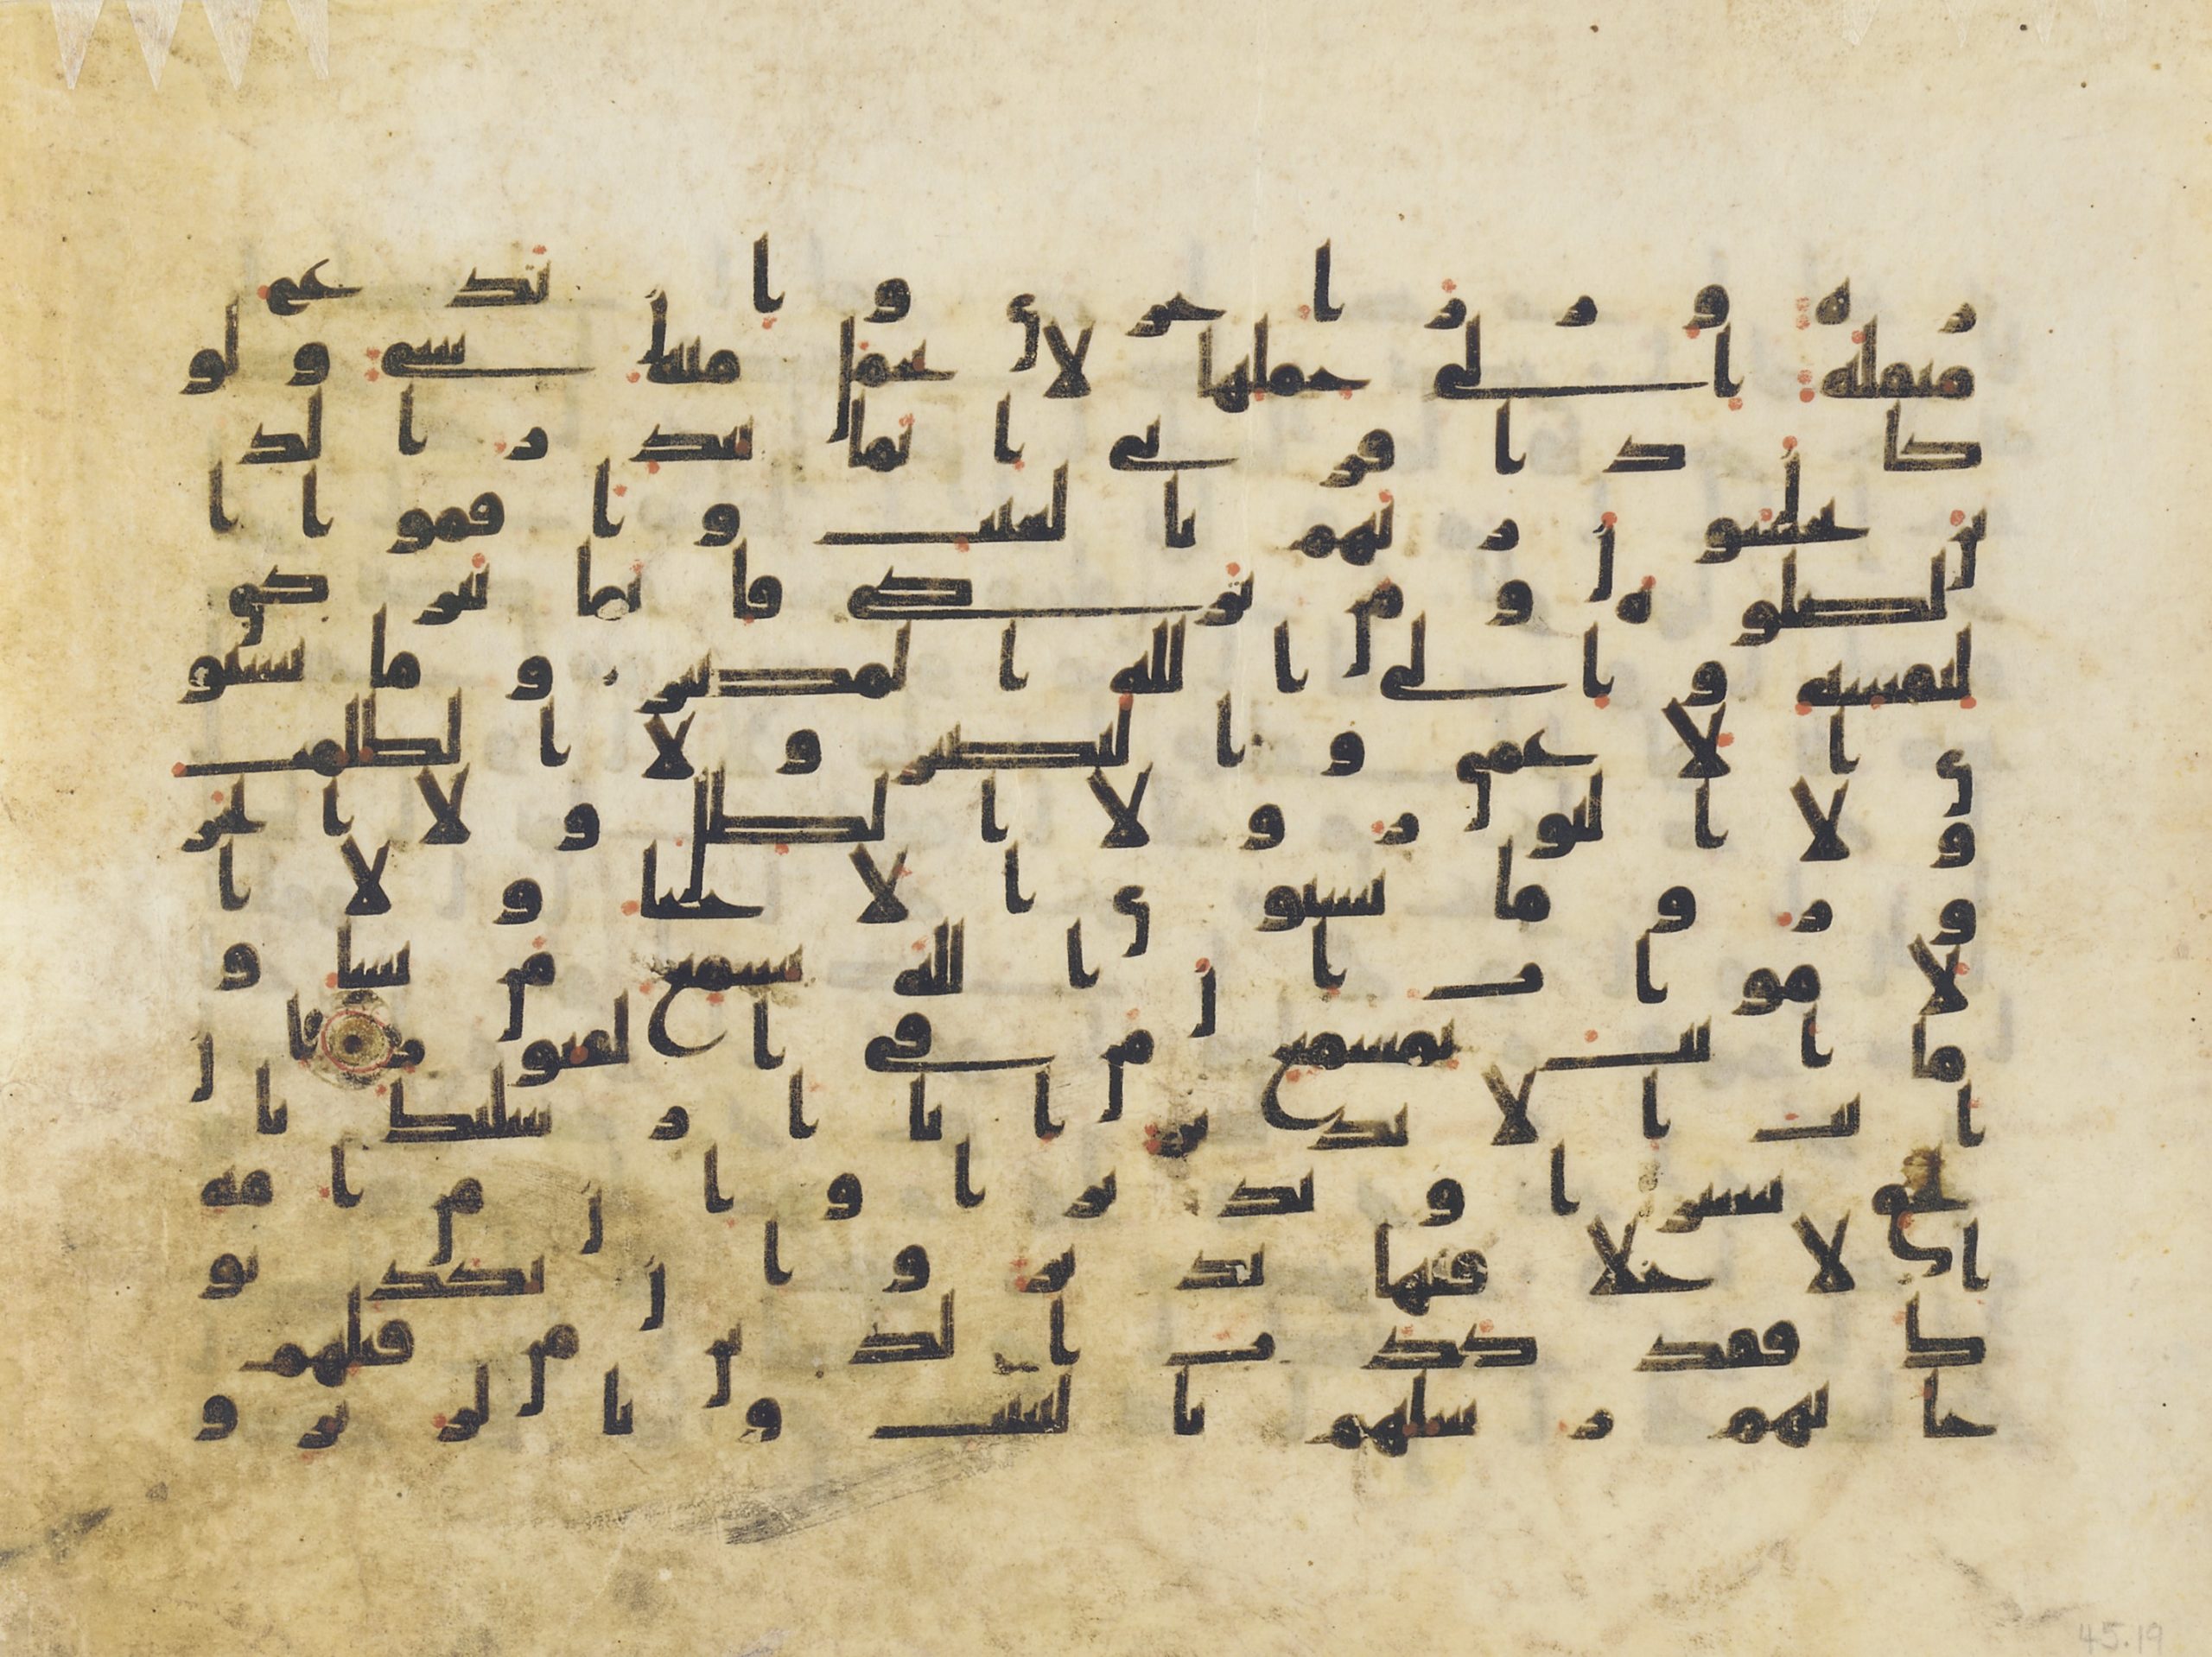 زرة وزر اخرى وان تدع
مثقلة الى حملها لا يحمل منه شى ولو
كان ذا قربى انما تنذر الذ
ين يخشون ربهم بالغيب واقاموا ا
لصلوة ومن تزكى فانما يتزكى
لنفسه والى الله المصير وما يستو
ى الاعمى والبصير ولا الظلمت
ولا النور ولا الظل ولا الحرو
ر وما يستوى الاحيا ولا ا
لاموت ان الله يسمع من يشا و
ما انت بمسمع من فى القبور ان
انت الا نذير انا ارسلنك با
لحق بشيرا ونذيرا وان من امة
الا خلا فيها نذير وان يكذبو
ك فقد كذب الذين من قبلهم
جاتهم رسلهم بالبينت وبالزبر و
45.19